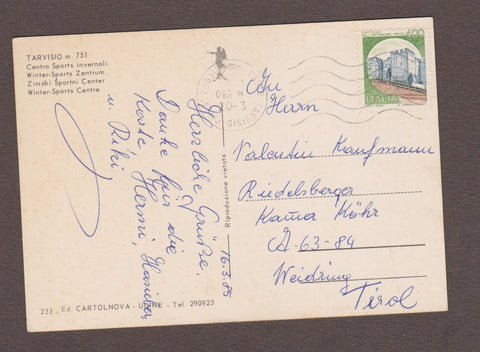 TARVISIO m. 751
Centro Sports invernali
Winter-Sports Zentrum
Zimski Športni Center
Winter-Sports Centre
16.3.85
Herrliche Grüße.
Danke für die
Karte Hermi,
u. Riki
An
Herrn
Valentin Kaufmann
Riedelsberger
Köhr
A-63-84
Weidring
Tirol
400
ITALIA
TARVISIO
Riproduzione vietata
233 - Ed. CARTOLNOVA - UDINE - Tel. 290923